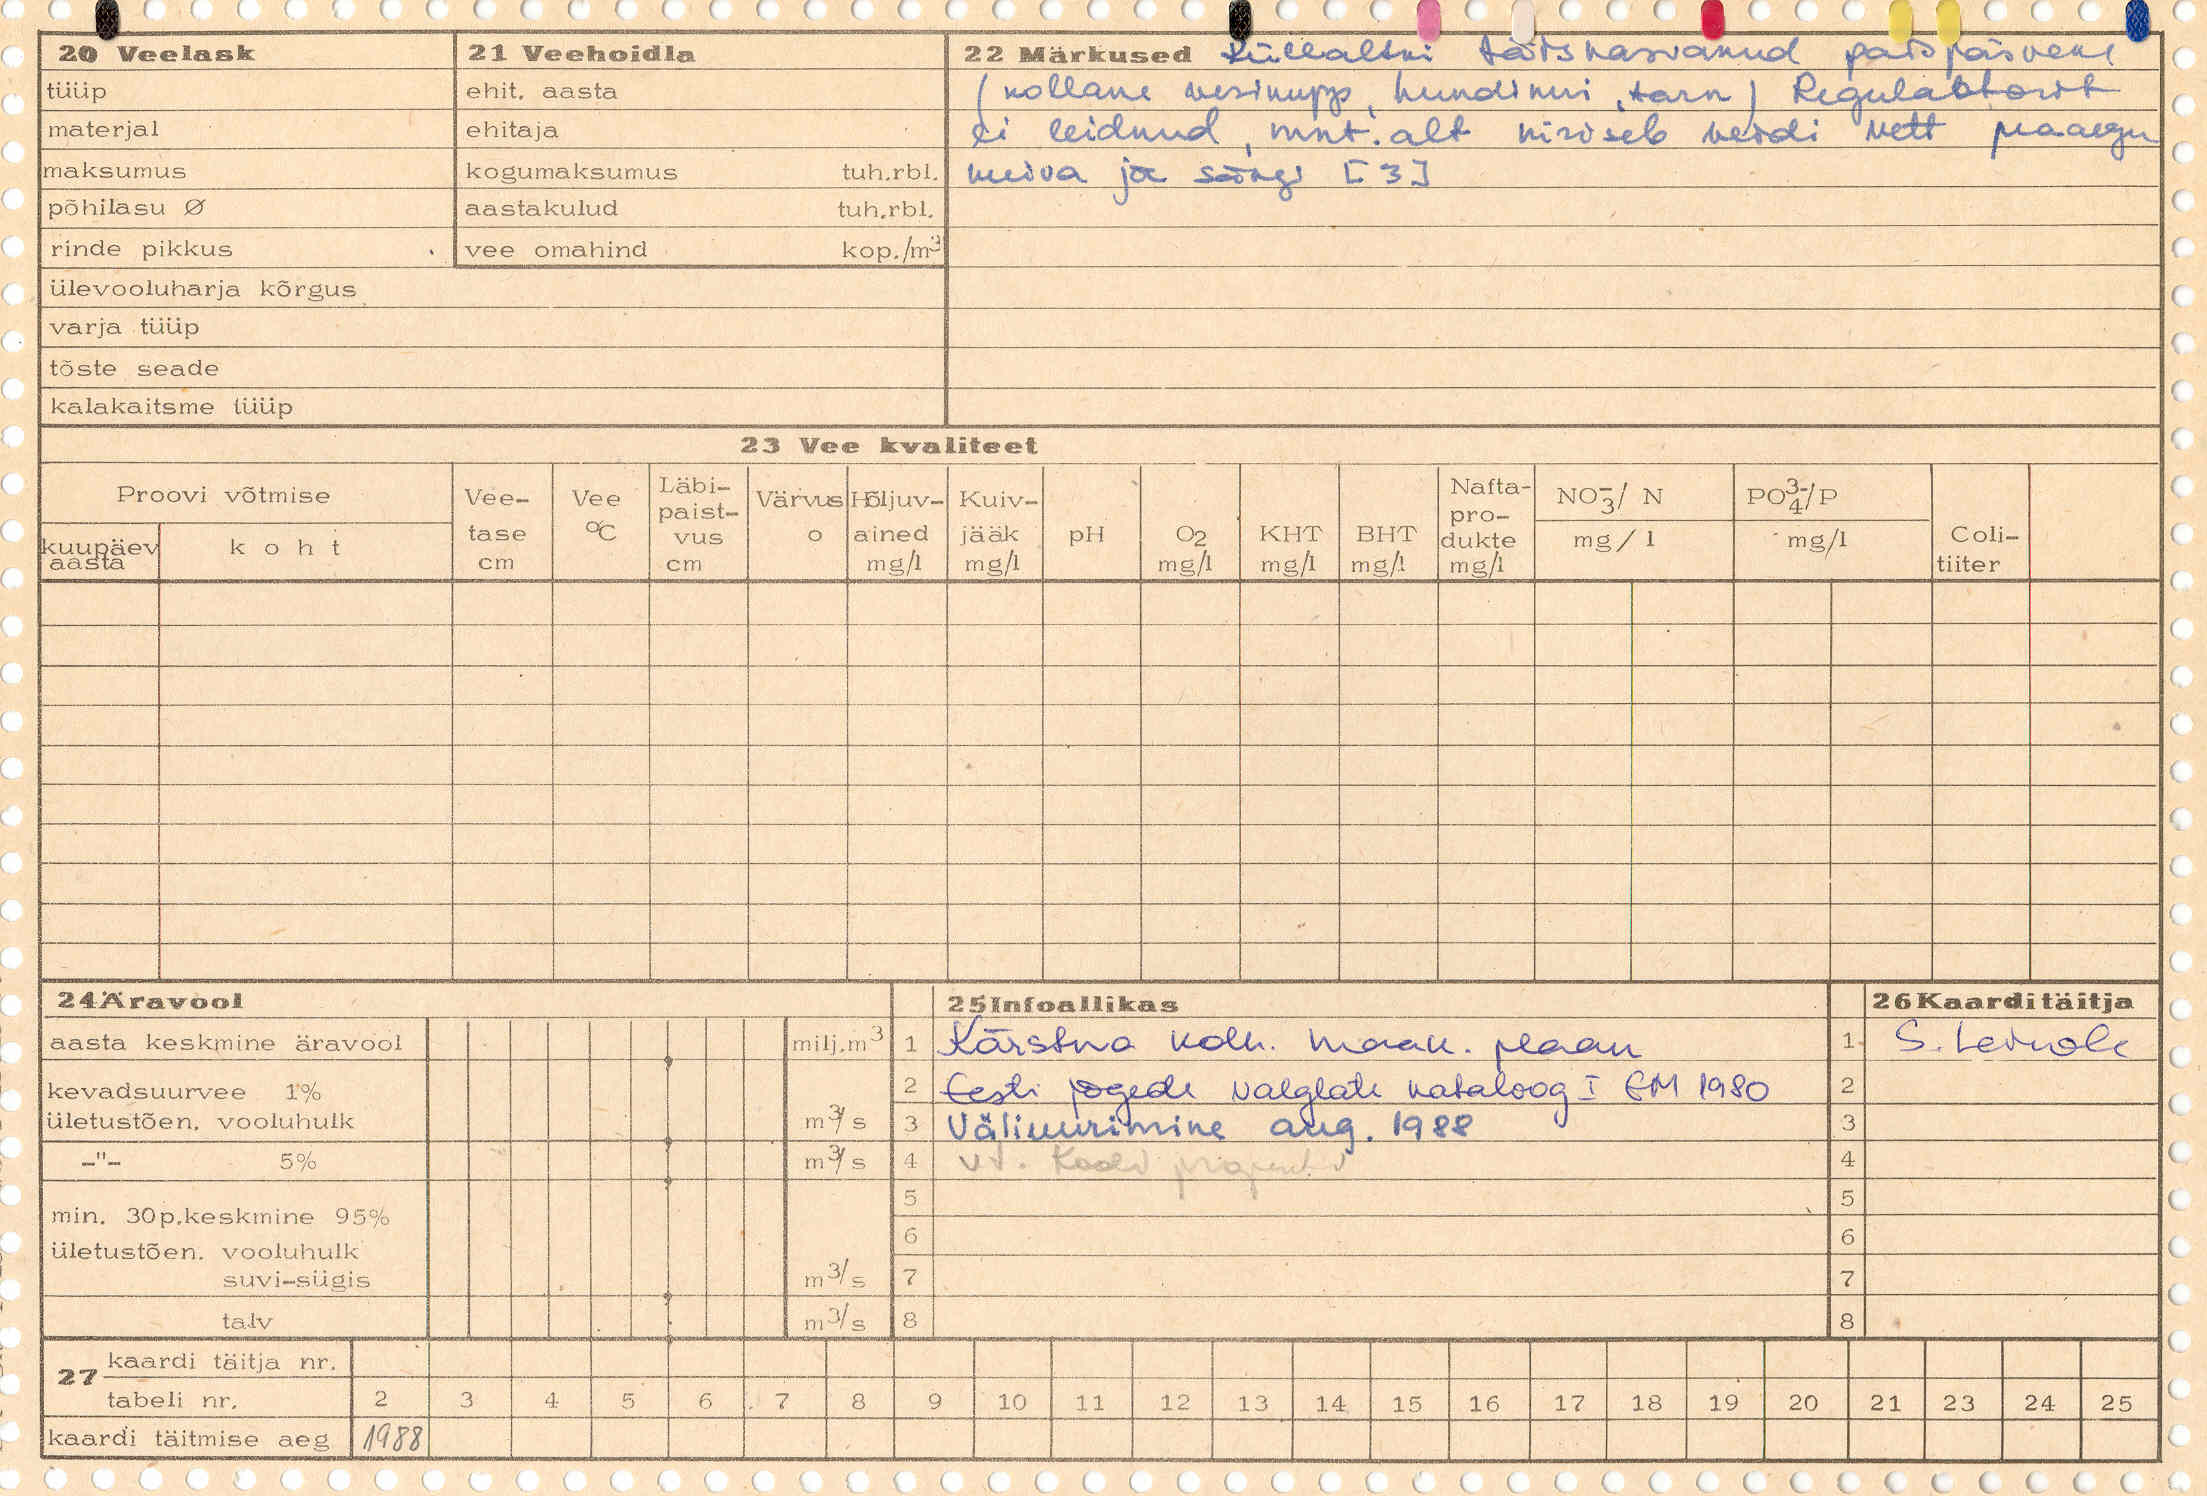 20 Veelask
tüüp
materjal
maksumus
põhilasu Ø
rinde pikkus
ülevooluharja kõrgus
varja tüüp
tõste seade
kalakaitsme tüüp
21 Veehoidla
ehit. aasta
ehitaja
kogumaksumus tuh.rbl.
aastakulud tuh.rbl.
vee omahind kop./m³
22 Märkused Küllaltki täiskasvanud paisjärveke
(kollane vesikupp, hundinui, tarn) Regulaatorit
ei leidnud, mnt. alt niriseb veidi vett peaaegu
kuiva jõe sängi [3]
23 Vee kvaliteet
Proovi võtmise
kuupäev aasta
koht
Vee-
tase
cm
Vee
°C
Läbi-
paist-
vus
cm
Värvus
o
Hõljuv-
ained
mg/l
Kuiv-
jääk
mg/l
pH
O₂
mg/l
KHT
mg/l
BHT
mg/l
Nafta-
pro-
dukte
mg/l
NO₃⁻/ N
mg/l
PO₄³⁻/P
mg/l
Coli-
tiiter
24 Äravool
aasta keskmine äravool milj.m³
kevadsuurvee 1%
ületustõen. vooluhulk m³/s
-"- 5% m³/s
min. 30p.keskmine 95%
ületustõen. vooluhulk
suvi-sügis m³/s
talv m³/s
25 Infoallikas
1 Kärstna kolh. maak. plaan
2 Eesti jõgede valglate kataloog I EM 1980
3 Väliuurimine aug. 1988
4 vt. Koobi
5
6
7
8
26 Kaarditäitja
1 S. Leinola
2
3
4
5
6
7
8
27 kaardi täitja nr.
tabeli nr. 2 3 4 5 6 7 8 9 10 11 12 13 14 15 16 17 18 19 20 21 23 24 25
kaardi täitmise aeg 1988